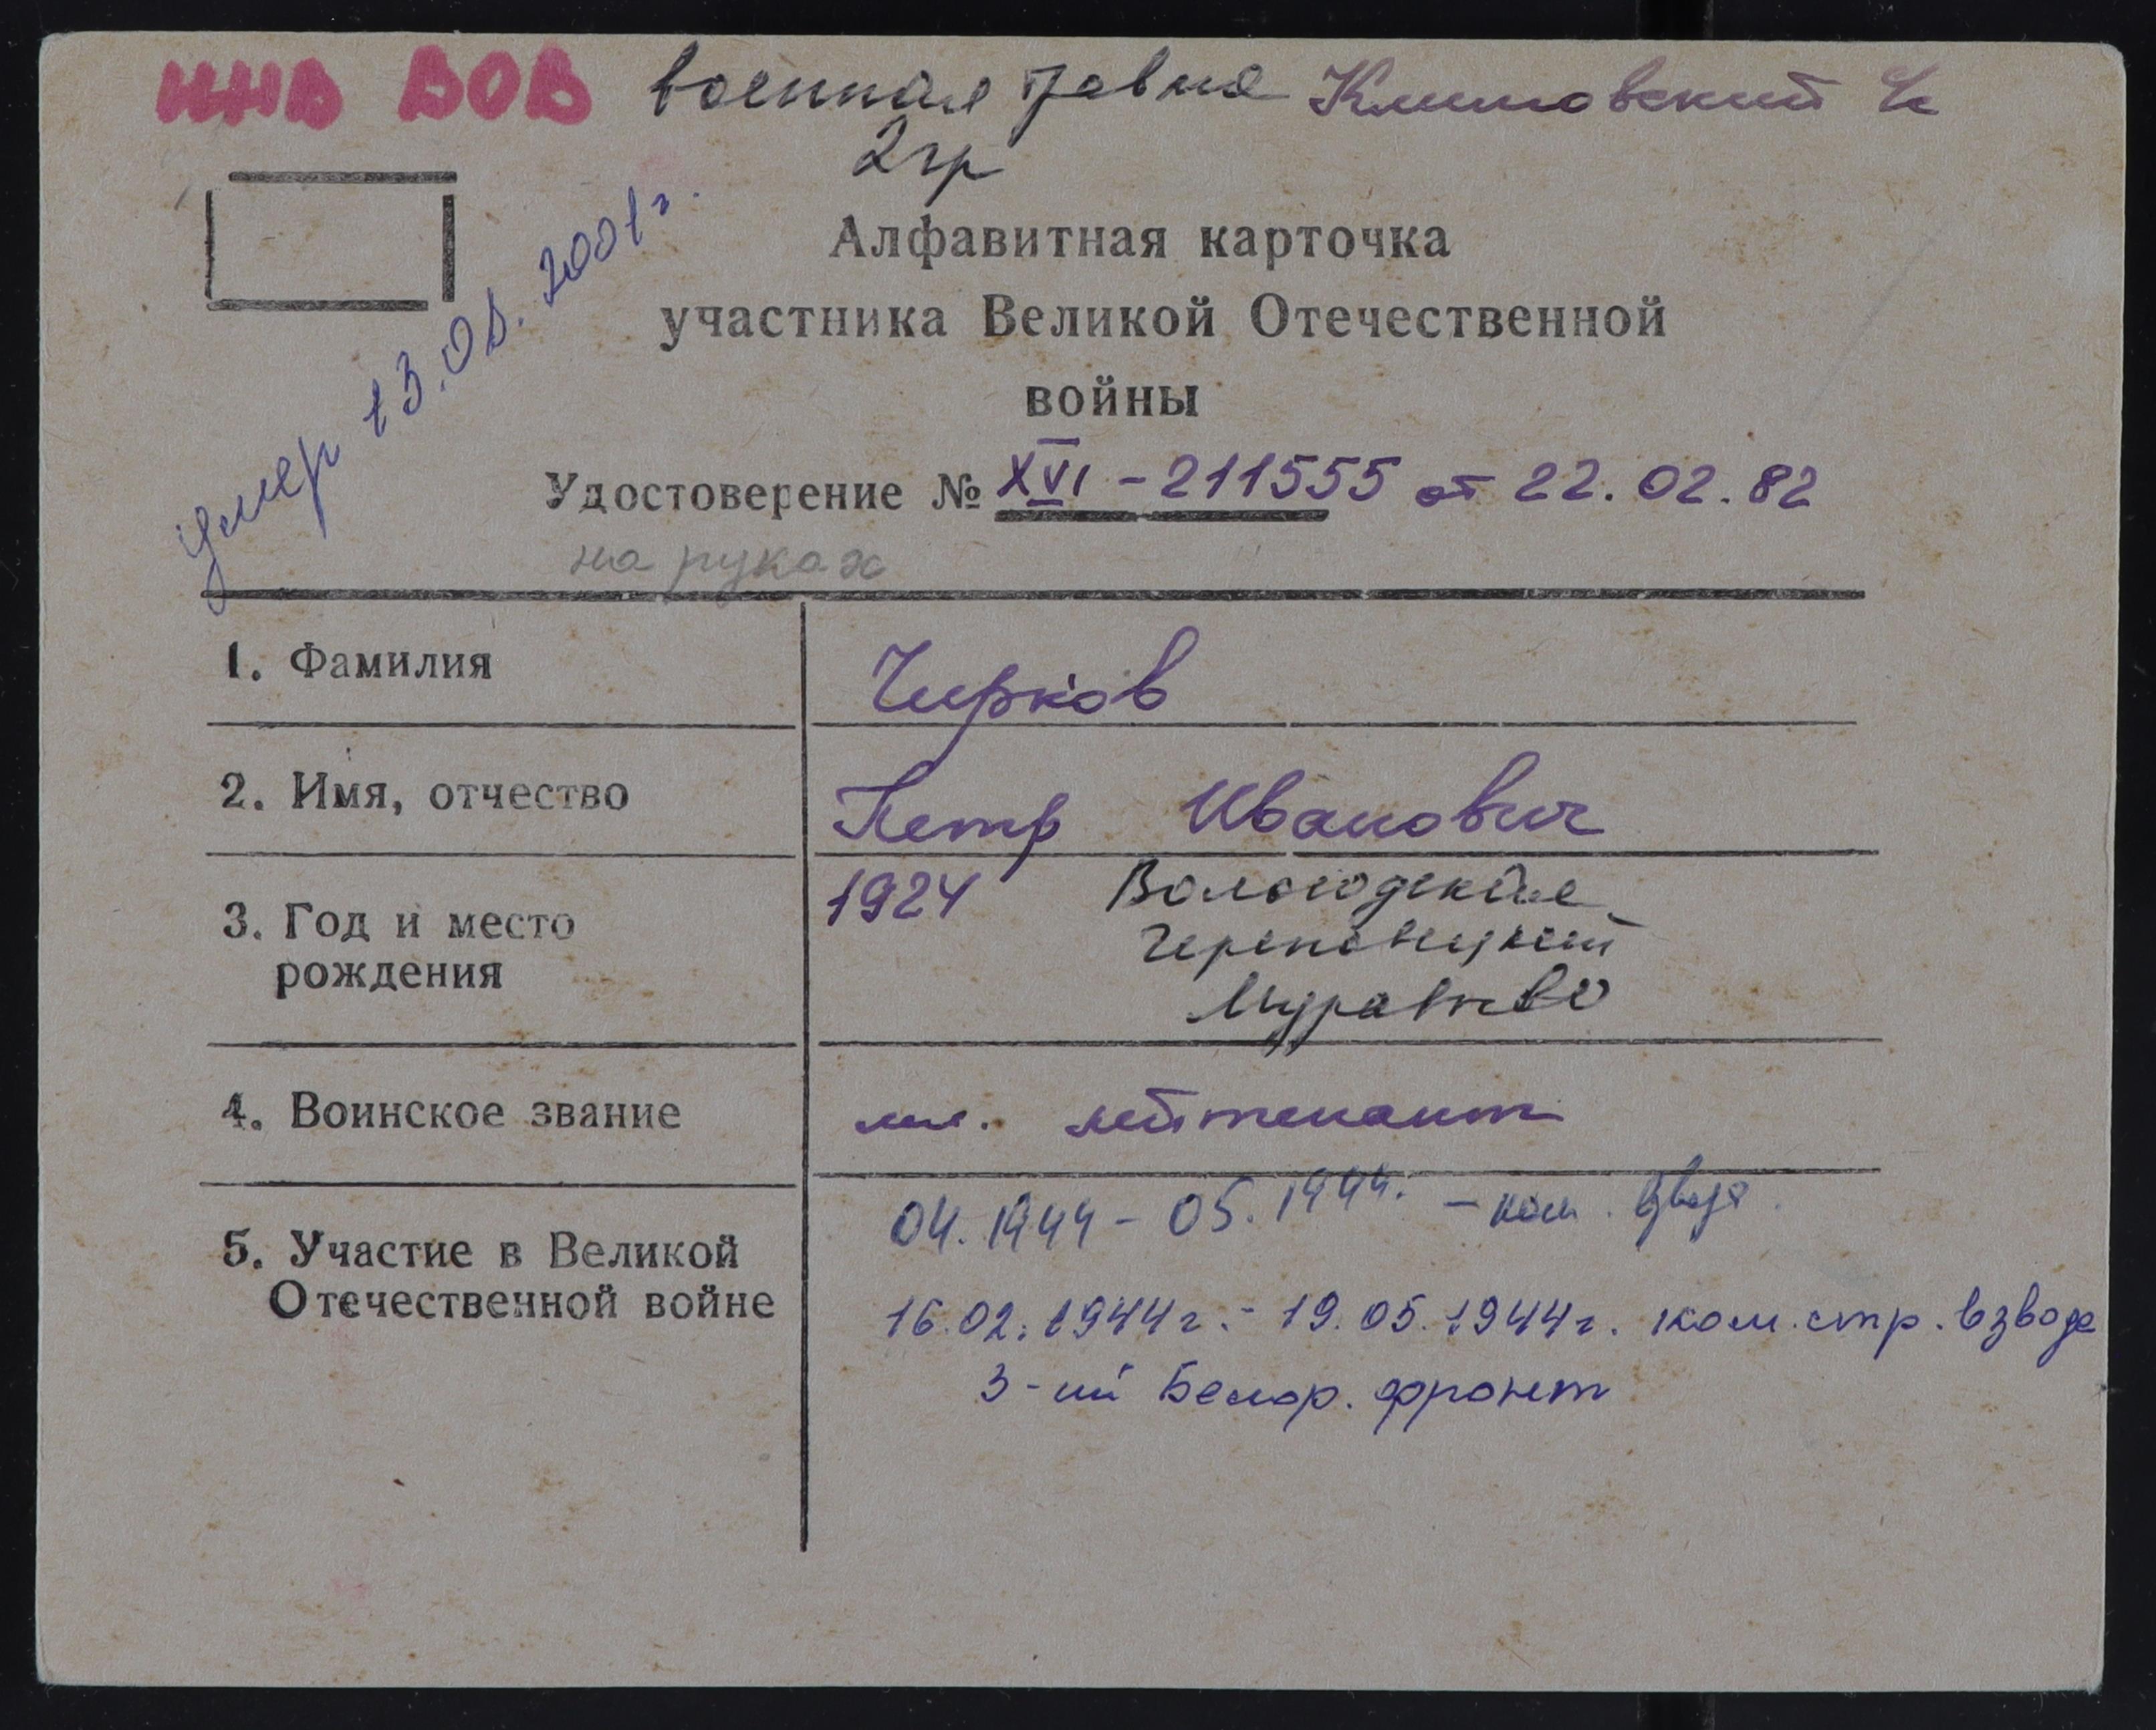 ИНВ ВОВ военная травма Климовский Ч
2гр
умер 13.08.2001г.
Алфавитная карточка
участника Великой Отечественной
войны
Удостоверение № XVI - 211555 от 22.02.82
на руках
1. Фамилия
Чирков
2. Имя, отчество
Петр Иванович
3. Год и место
рождения
1924 Вологодская
Череповецкий
Муравьево
4. Воинское звание
мл. лейтенант
5. Участие в Великой
Отечественной войне
04.1944 - 05.1944. - ком. взвода.
16.02.1944г. - 19.05.1944г. ком. стр. взвода
3-ий Белор. фронт